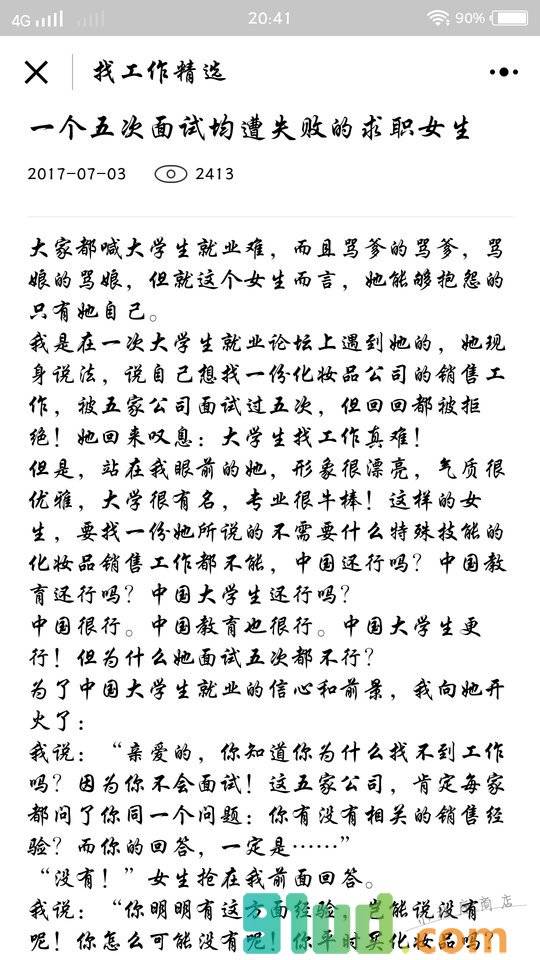 4G
20:41
90%
找工作精选
一个五次面试均遭失败的求职女生
2017-07-03 2413
大家都喊大学生就业难，而且骂爹的骂爹，骂
娘的骂娘，但就这个女生而言，她能够抱怨的
只有她自己。
我是在一次大学生就业论坛上遇到她的，她现
身说法，说自己想找一份化妆品公司的销售工
作，被五家公司面试过五次，但回回都被拒
绝！她回来叹息：大学生找工作真难！
但是，站在我眼前的她，形象很漂亮，气质很
优雅，大学很有名，专业很牛棒！这样的女
生，要找一份她所说的不需要什么特殊技能的
化妆品销售工作都不能，中国还行吗？中国教
育还行吗？中国大学生还行吗？
中国很行。中国教育也很行。中国大学生更
行！但为什么她面试五次都不行？
为了中国大学生就业的信心和前景，我向她开
火了：
我说：“亲爱的，你知道你为什么找不到工作
吗？因为你不会面试！这五家公司，肯定每家
都问了你同一个问题：你有没有相关的销售经
验？而你的回答，一定是……”
“没有！”女生抢在我前面回答。
我说：“你明明有这方面经验，岂能说没有
呢！你怎么可能没有呢！你平时买化妆品吗？
商店
91ud.com